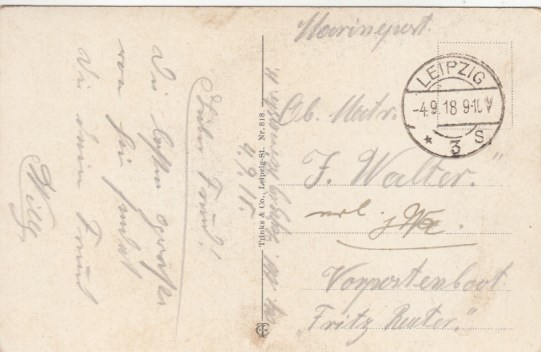 Marinepost.
LEIPZIG
-4.9.18 9-10V
* 3 S.
Ob. Matr.
F. Walter."
Vorpostenboot
"Fritz Reuter."
Trinks & Co., Leipzig-St. Nr. 818.
4.9.18.
Lieber Freund!
Die besten Grüße
von hier sendet
dir dein Freund
Willy